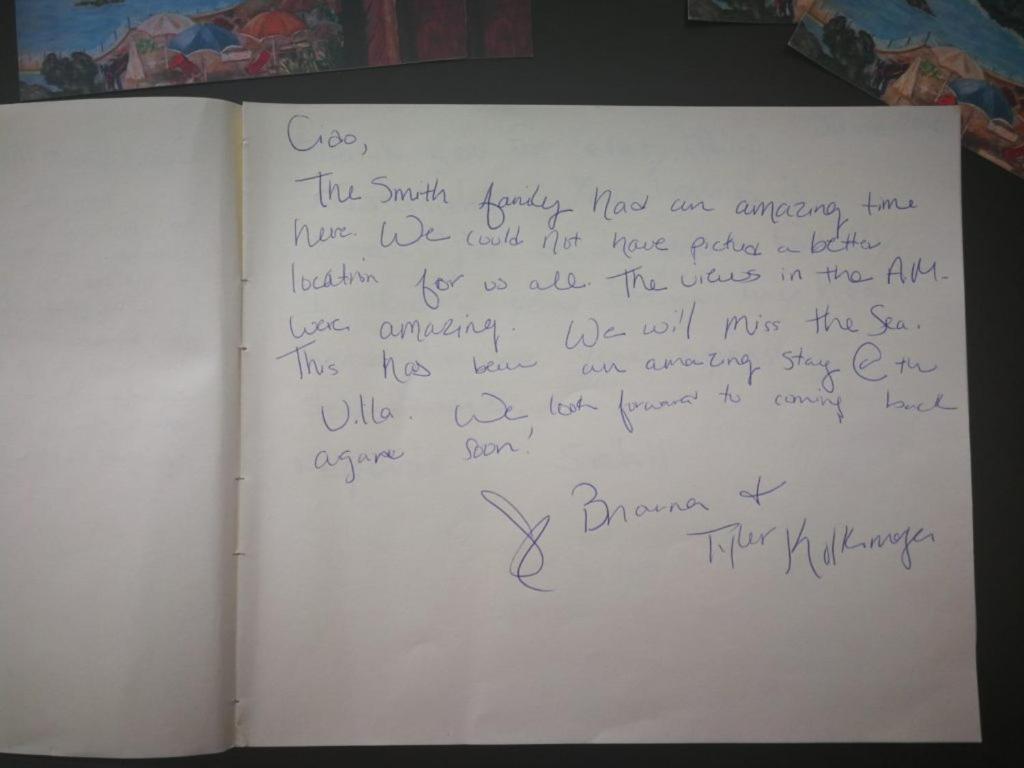 Ciao,
The Smith family had an amazing time
here. We could not have picked a better
location for us all. The views in the AM.
were amazing. We will miss the Sea.
This has been an amazing stay @ the
Villa. We look forward to coming back
again soon!
Brianna &
Tyler